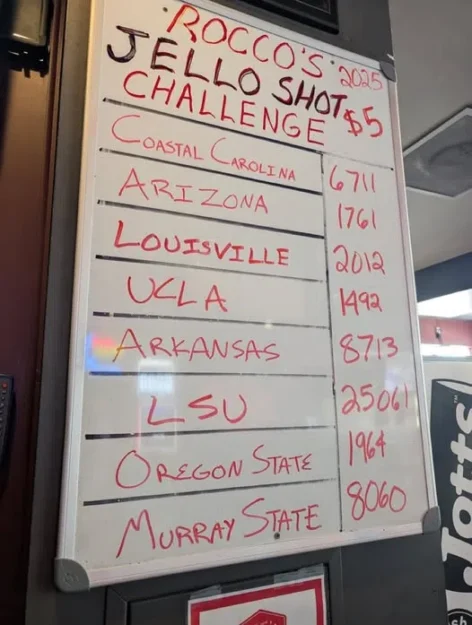 ROCCO'S 2025
JELLO SHOT
CHALLENGE $5
COASTAL CAROLINA 6711
ARIZONA 1761
LOUISVILLE 2012
UCLA 1492
ARKANSAS 8713
LSU 25061
OREGON STATE 1964
MURRAY STATE 8060